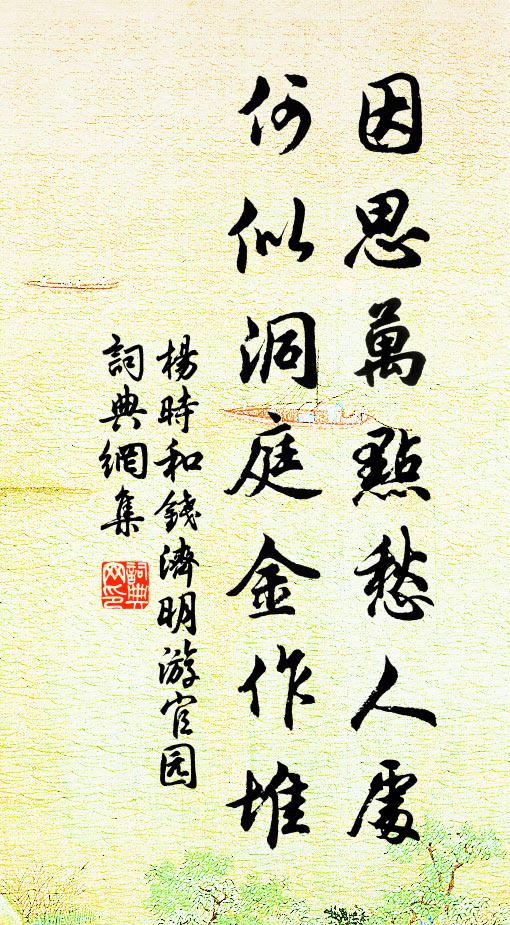 因思萬點愁人處
何似洞庭金作堆
楊時和錢濟明游官园
詞典網集
詞典网印